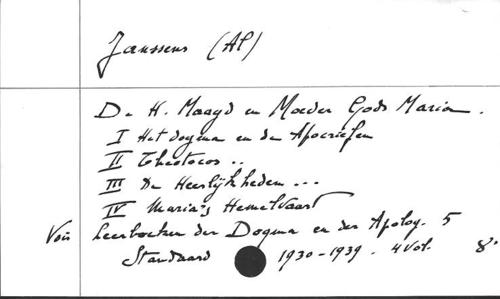 Janssens (Al)
De H. Maagd en Moeder Gods Maria.
I Het dogma en de Apocriefen
II Theotocos ..
III De Heerlijkheden ...
IV Maria's Hemelvaart
Voir Leerboeken der Dogma en der Apolog. 5
Standaard 1930-1939. 4 vol. 8°